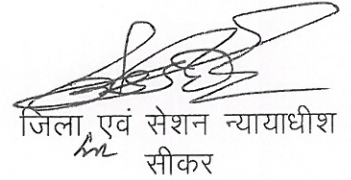 जिला एवं सेशन न्यायाधीश
सीकर